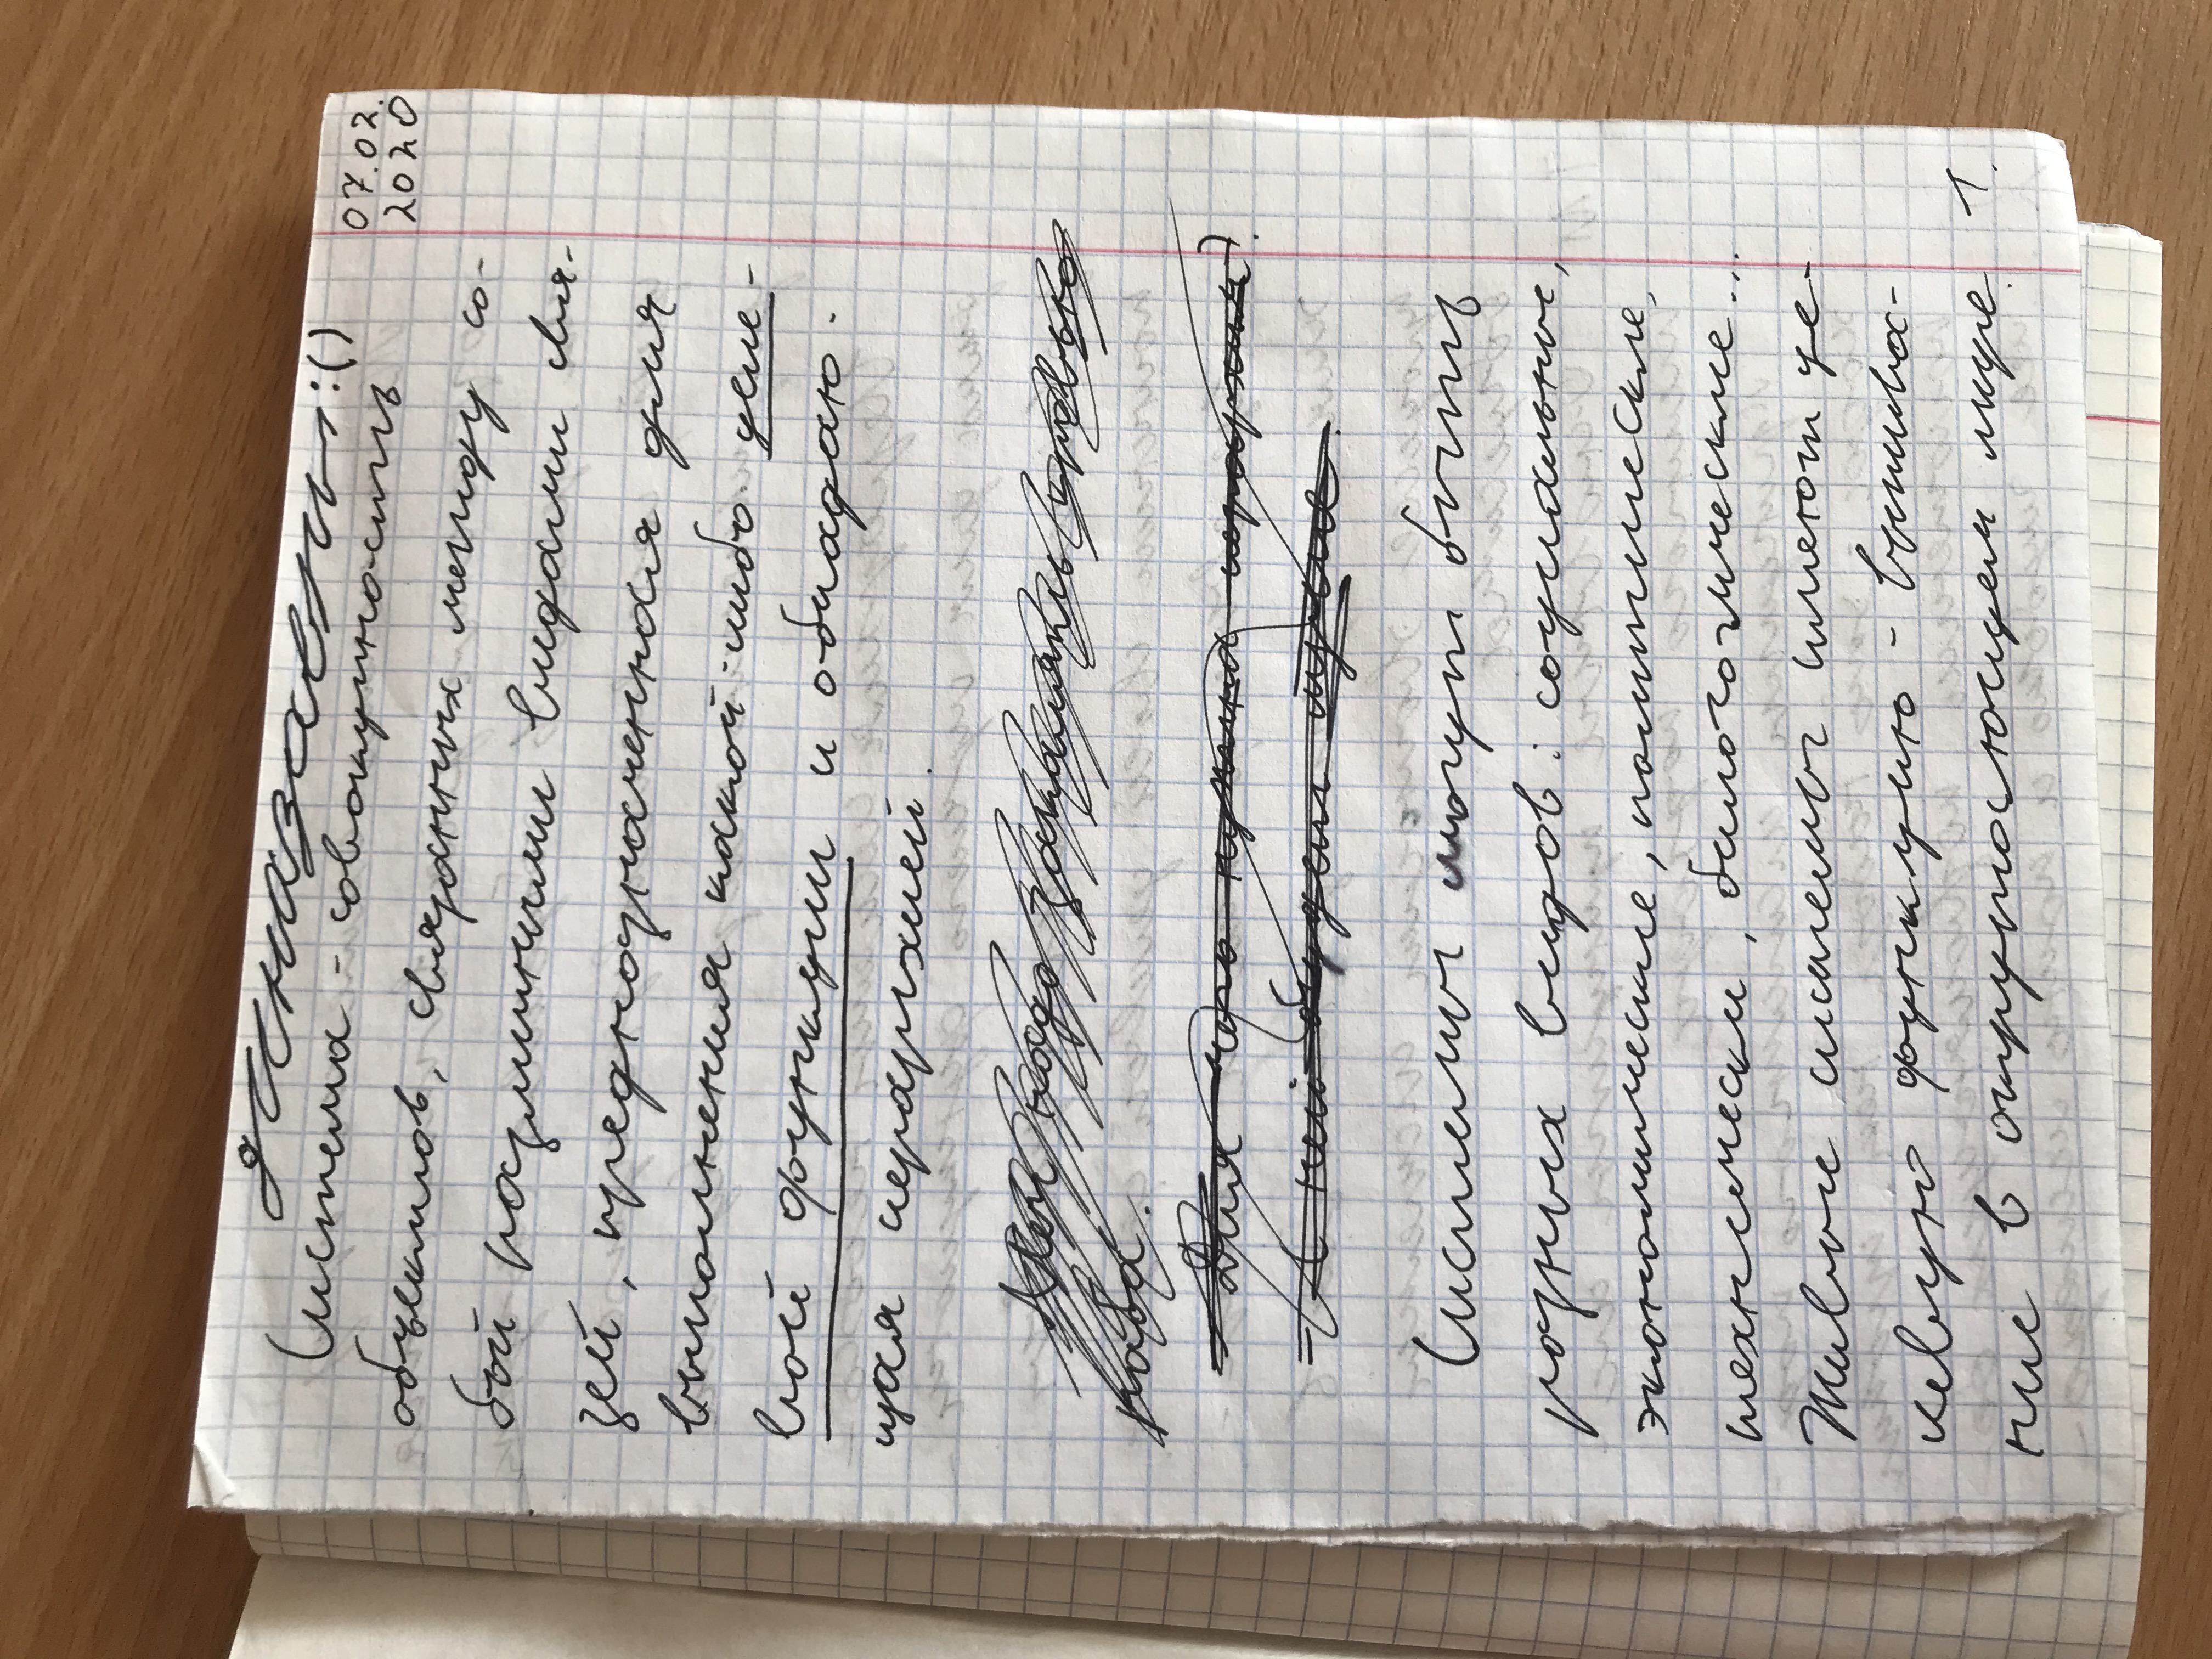 динозавры :()
07.02.
2020
Система - совокупность
объектов, связанных между со-
бой различными видами свя-
зей, предназначенная для
выполнения какой-либо целе-
вой функции и обладаю-
щая иерархией.
надо кровью
раба.
Для чего нужна иерархия?
- С ней будет лучше.
Системы могут быть
разных видов: социальные,
экономические, политические,
технически, биологогические...
Живые системы имеют це-
левую функцию - выжива-
ние в окружающем мире.
1.